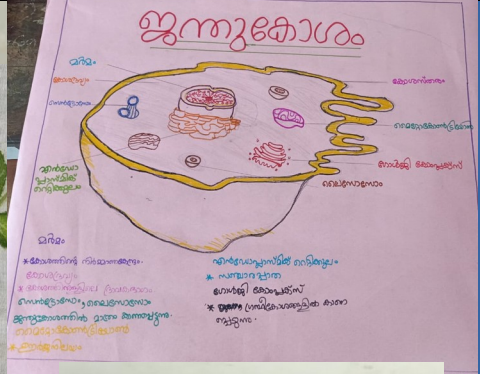 ജന്തുകോശം
മർമം
കോശദ്രവ്യം
സെൻട്രോസോം
എൻഡോ
പ്ലാസ്മിക്
റെറ്റിക്കുലം
കോശസ്തരം
മൈറ്റോകോൺട്രിയോൻ
ഗോൾജി കോംപ്ലക്സ്
ലൈസോസോം
മർമം
* കോശത്തിന്റെ നിയന്ത്രണകേന്ദ്രം.
കോശദ്രവ്യം
സെൻട്രോസോം, ലൈസോസോം
ജന്തുകോശത്തിൽ മാത്രം കാണപ്പെടുന്നു.
മൈറ്റോകോൺട്രിയോൻ
* ഊർജനിലയം
എൻഡോപ്ലാസ്മിക് റെറ്റിക്കുലം
* സഞ്ചാരപാത
ഗോൾജി കോംപ്ലക്സ്
* ഗ്രന്ഥീകോശങ്ങളിൽ കാണ
പ്പെടുന്നു.